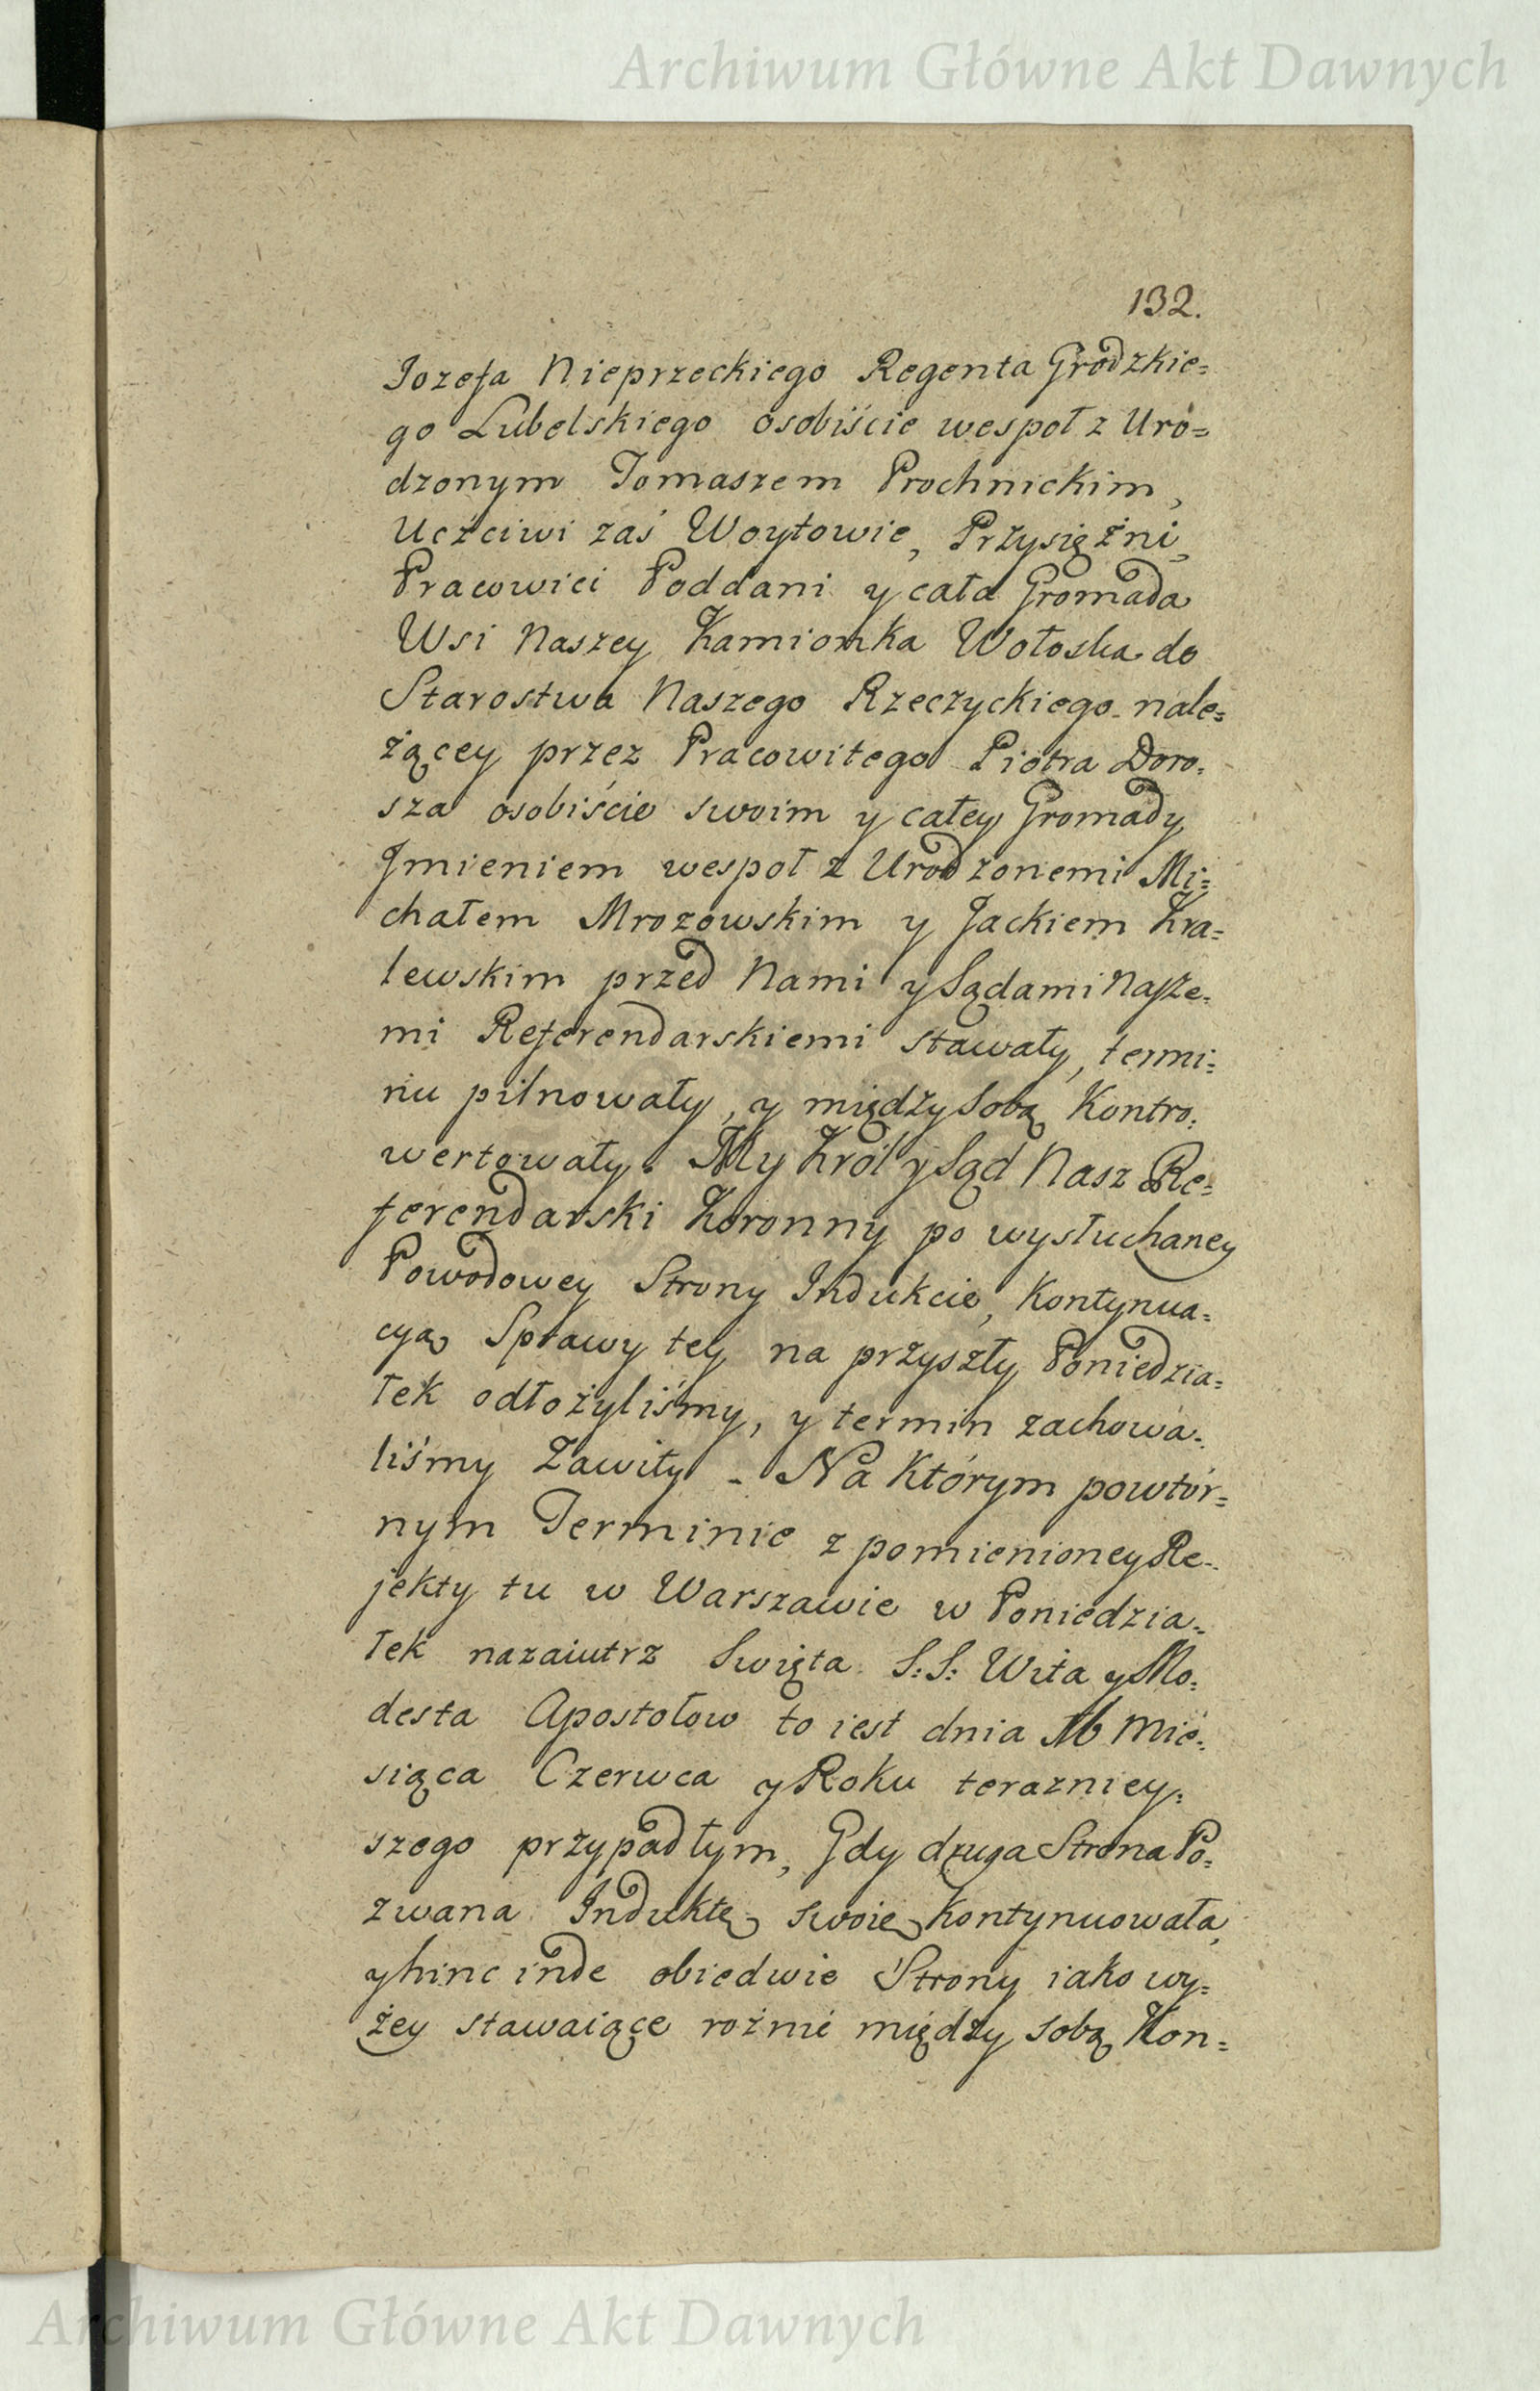 Archiwum Główne Akt Dawnych
132.
Jozefa Nieprzeckiego Regenta Grodzkie=
go Lubelskiego osobiście wespoł z Uro=
dzonym Tomaszem Prochnickim,
Uczciwi zaś Woytowie, Przysiężni,
Pracowici Poddani y cała Gromada
Wsi Naszey Kamionka Wołoska do
Starostwa Naszego Rzeczyckiego nale=
żącey przez Pracowitego Piotra Doro=
sza osobiście swoim y całey Gromady
Jmieniem wespoł z Urodzonemi Mi=
chałem Mrozowskim y Jackiem Kra=
lewskim przed Nami y Sądami Nasze=
mi Referendarskiemi stawały, termi=
nu pilnowały, y między Sobą Kontro=
wertowały. My Król y Sąd Nasz Re=
ferendarski Koronny po wysłuchaney
Powodowey Strony Indukcie, Kontynua=
cyą Sprawy tey na przyszły Poniedzia=
łek odłożyliśmy, y termin zachowa=
liśmy Zawity - Na Którym powtór=
nym Terminie z pomienioney Re=
jekty tu w Warszawie w Poniedzia=
łek nazaiutrz Swięta S: S: Wita y Mo=
desta Apostołow to iest dnia 16 Mie=
siąca Czerwca y Roku terazniey=
szego przypadłym, Gdy druga Strona Po=
zwana Induktę swoię Kontynuowała,
y hinc inde obiedwie Strony iako wy=
żey stawaiące rożnie między sobą Kon=
Archiwum Główne Akt Dawnych